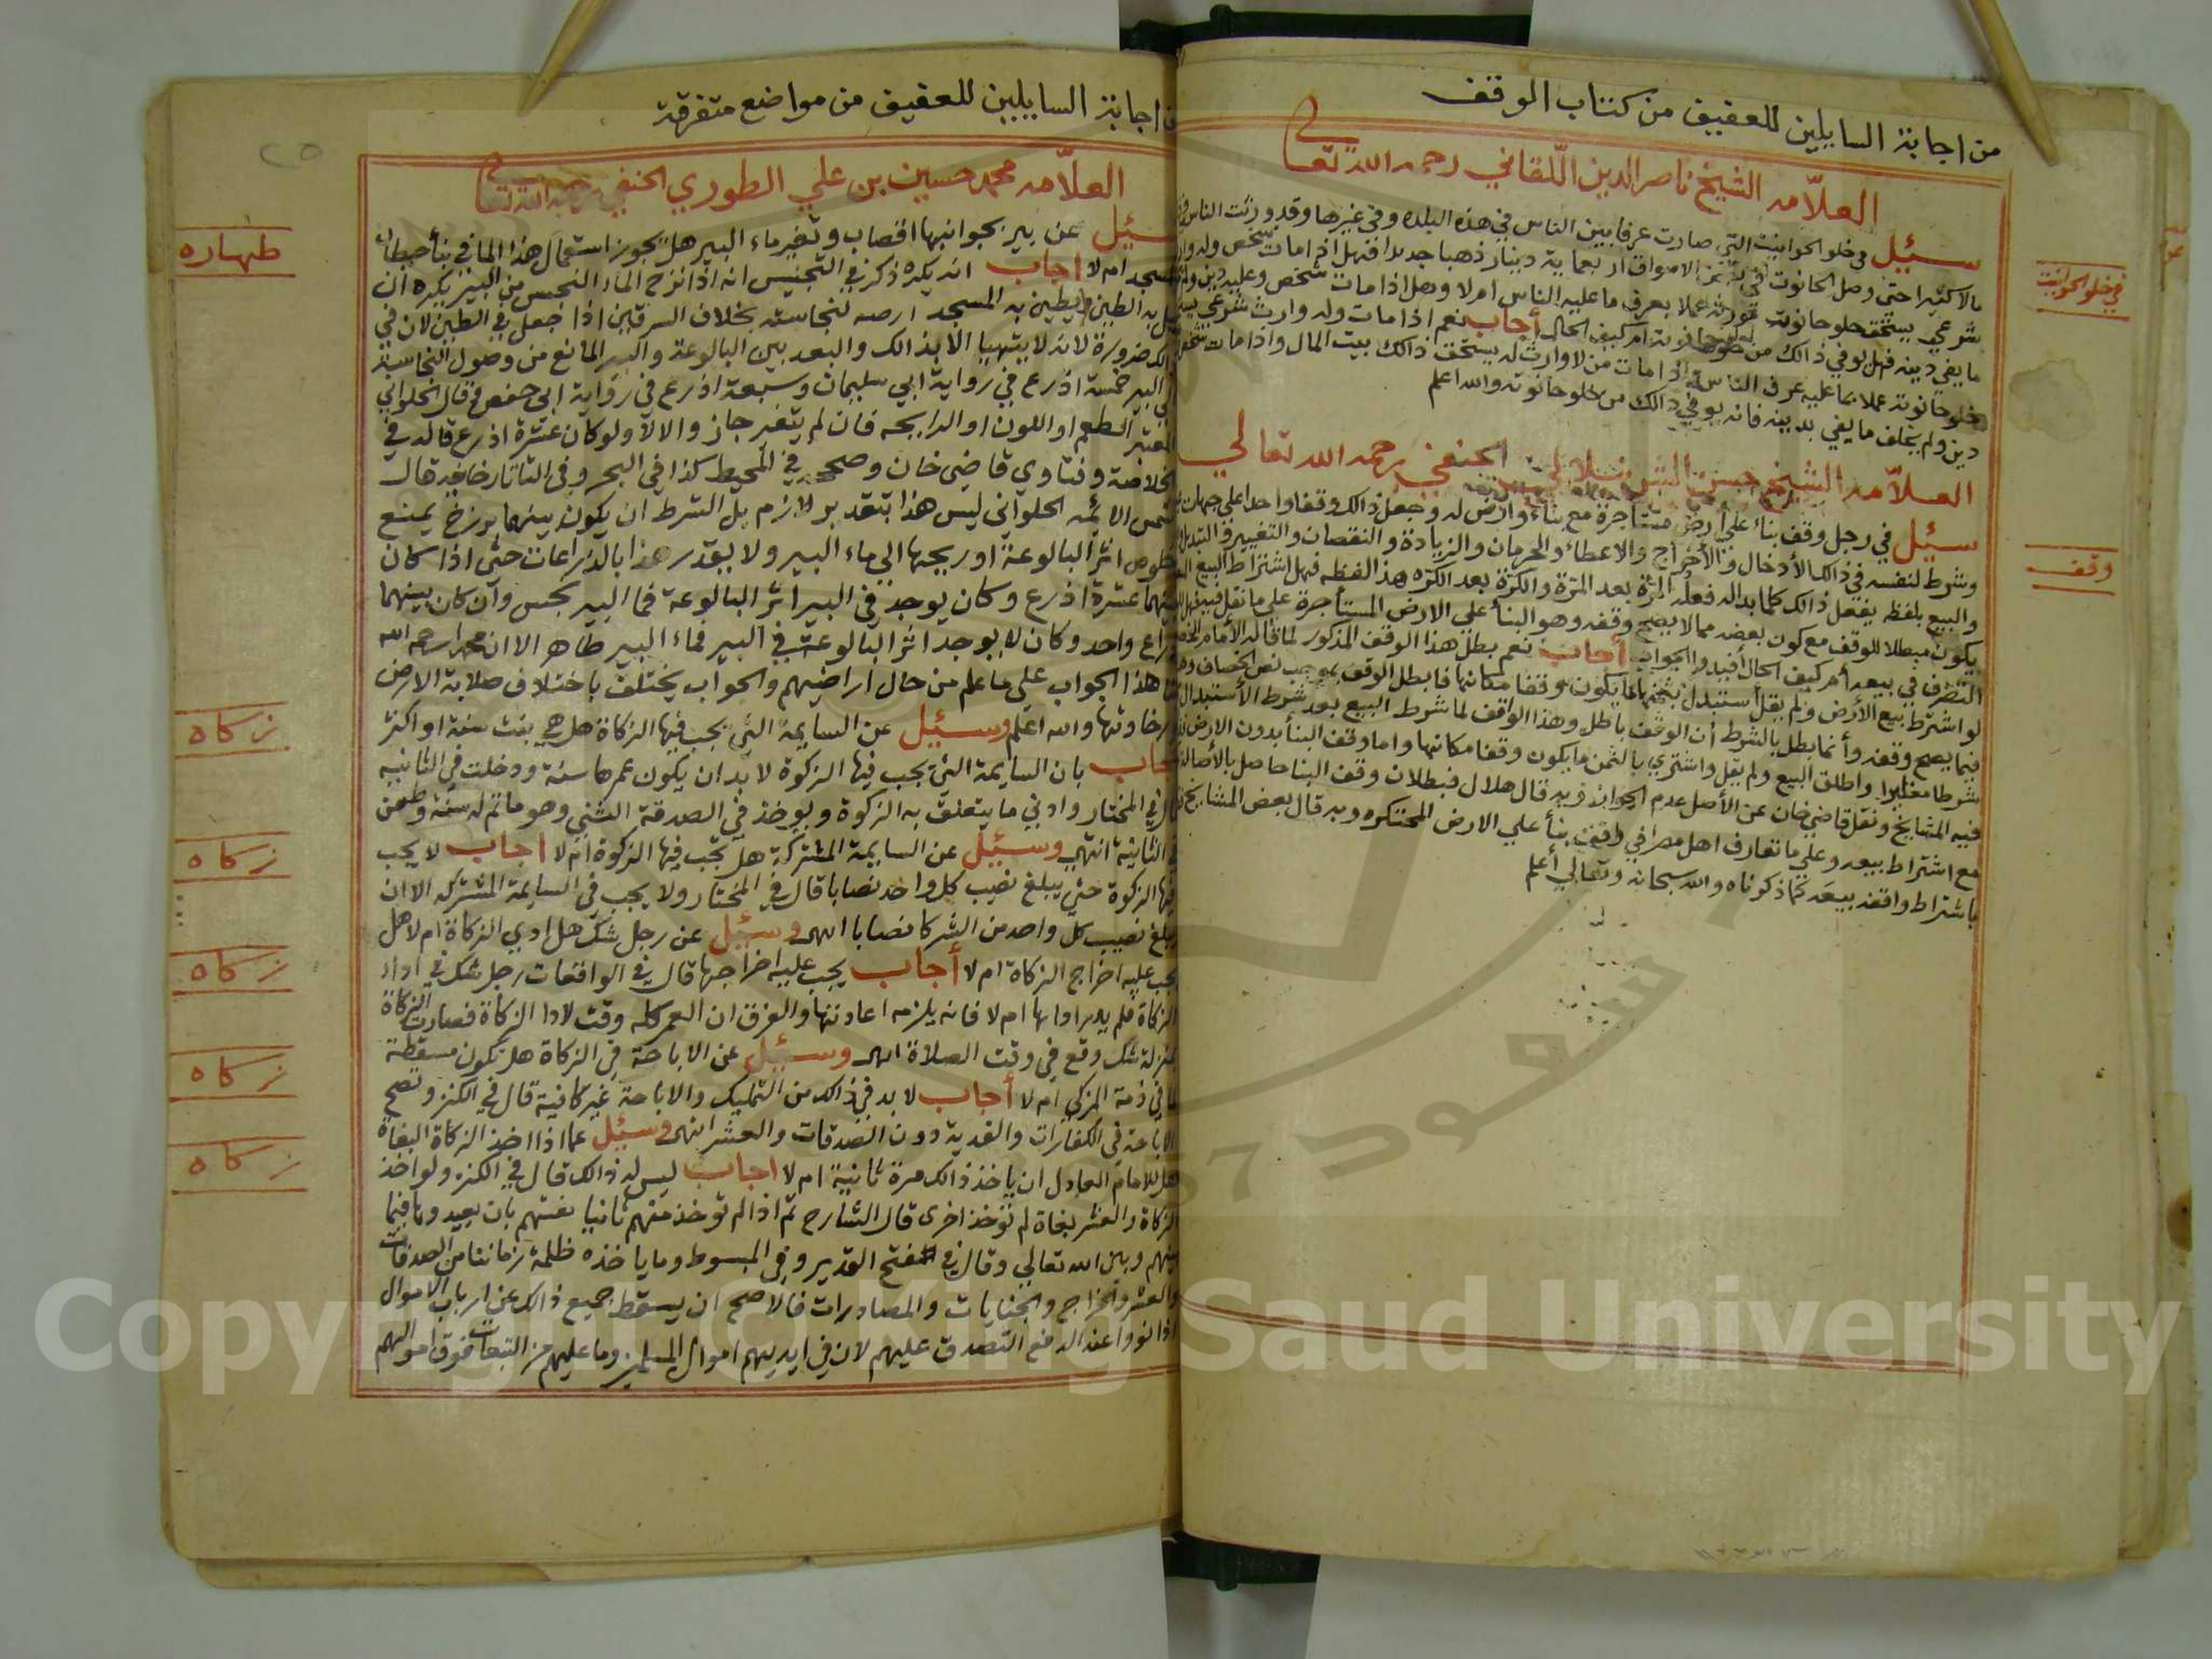 من اجابة السايلين للعقيق من كتاب الوقف
العلامه الشيخ ناصر الدين اللقاني رحمه الله تعالى
سئيل في خلو الحوانيت التي صارت عرفا بين الناس في هذه البلده وفي غيرها وقد وزنت الناس في
مالا كثيرا حتى وصل الحانوت في الاسواق اربعماية دينار ذهبا جديدا فهل اذا مات شخص وله وارث
شرعي يستحق خلو حانوت مورثه عملا بعرف ما عليه الناس ام لا وهل اذا مات شخص وعليه دين ولم
ما يفي دينه فهل يوفي ذالك من خلو حانوته ام كيف الحال أجاب نعم اذا مات وله وارث شرعي
خلو حانوته عملا بما عليه عرف الناس واذا مات من لا وارث له يستحق ذالك بيت المال واذا مات شخص
دين ولم يخلف ما يفي بدينه فانه يوفي ذالك من خلو حانوته والله اعلم
العلامه الشيخ حسن الشرنبلالي الحنفي رحمه الله تعالى
سئيل في رجل وقف بناء علي أرض مستاجرة مع بناء وارض له وجعل ذالك وقفا واحدا علي جهات
وشرط لنفسه في ذالك الأدخال والأخراج والاعطاء والحرمان والزيادة والنقصان والتغيير والتبديل
والبيع بلفظه يفعل ذالك كلما بدا له فعله المرة بعد المرة والكرة بعد الكره هذا لفظه فهل اشتراط البيع
يكون مبطلا للوقف مع كون بعضه مما لا يصح وقفه وهو البنأ علي الارض المستأجرة علي ما نقل فيه
التصرف في بيعه أم كيف الحال أفيدوا الجواب أجاب نعم بطل هذا الوقف المذكور لما قاله الأمام الخصاف
لو اشترط بيع الأرض ولم يقل أستبدل بثمنها ما يكون وقفا مكانها فابطل الوقف بموجب نص الخصاف
فيما يصح وقفه وأنما بطل بالشرط أن الوقف باطل وهذا الوقف لما شرط البيع بعد شرط الأستبدال
شرطا مغايرا واطلق البيع ولم يقل واشتري بالثمن ما يكون وقفا مكانها واما وقف البنأ بدون الارض
فيه المشايخ ونقل قاضي خان عن الأصل عدم الجواز وبه قال هلال فبطلان وقف البنا حاصل بالأصالة
مع اشتراط بيعه وعلي ما تعارف اهل مصر في وقف بنأ علي الارض المحتكره وبه قال بعض المشايخ
باشتراط واقفه بيعه كما ذكرناه والله سبحانه وتعالي أعلم
في خلو الحوانيت
وقف
اجابة السايلين للعقيق من مواضع متفرقة
العلامه محمد حسين بن علي الطوري الحنفي رحمه الله تعالى
سئيل عن بير بجوانبها اقصاب وتغير ماء البير هل يجوز استعمال هذا الما في بنأ حيطان
المسجد ام لا اجاب انه يكره ذكر في التجنيس انه اذا نزح الماء النجس من البير يكره ان
يبل به الطين ويطين به المسجد ارضه لنجاسته بخلاف السرقين اذا جعل في الطين لان في
ذالك ضرورة لانه لا يتهيا الا بذالك والبعد بين البالوعة والبير المانع من وصول النجاسة
الي البير خمسة اذرع في رواية ابي سليمان وسبعة اذرع في رواية ابي حفص وقال الحلواني
المعتبر الطعم او اللون او الرايحه فان لم يتغير جاز والا لا ولو كان عشرة اذرع قاله في
الخلاصة وفتاوي قاضي خان وصححه في المحيط كذا في البحر وفي التاتارخانيه قال
شمس الائمه الحلواني ليس هذا بتقدير لازم بل الشرط ان يكون بينهما برزخ يمنع
خلوص اثر البالوعة او ريحها الي ماء البير ولا يقدر هذا بالذراعات حتى اذا كان
بينهما عشرة اذرع وكان يوجد في البير اثر البالوعة فما البير نجس وأن كان بينهما
ذراع واحد وكان لا يوجد اثر البالوعة في البير فماء البير طاهر الا ان محمدا رحمه الله
هذا الجواب علي ما علم من حال اراضيهم والجواب يختلف باختلاف صلابة الارض
ورخاوتها والله اعلم وسئيل عن السايمة التي تجب فيها الزكاة هل هي بنت سنة او اكثر
اجاب بان السايمة التي تجب فيها الزكوة لا بد ان يكون عمرها سنة ودخلت في الثانيه
قال في المختار وادني ما يتعلق به الزكوة ويوخذ في الصدقة الثني وهو ما تم له سنة وطعن
في الثانية انتهي وسئيل عن السايمة المشتركة هل تجب فيها الزكوة ام لا اجاب لا يجب
فيها الزكوة حتي يبلغ نصيب كل واحد نصابا قال في المختار ولا يجب في السايمة المشتركه الا ان
يبلغ نصيب كل واحد من الشركا نصابا انتهى وسئيل عن رجل شك هل ادي الزكاة ام لا هل
يجب عليه اخراج الزكاة ام لا أجاب يجب عليه اخراجها قال في الواقعات رجل شك في اداء
الزكاة فلم يدر اداها ام لا فانه يلزمه اعادتها والفرق ان العمر كله وقت لادا الزكاة فصارت الزكاة
بمنزلة شك وقع في وقت الصلاة انتهى وسئيل عن الاباحة في الزكاة هل تكون مسقطة
لما في ذمة المزكي ام لا أجاب لا بد في ذالك من التمليك والاباحة غير كافية قال في الكنز وتصح
الاباحة في الكفارات والفدية دون الصدقات والعشر انتهى وسئيل عما اذا اخذ الزكاة البغاة
هل للامام العادل ان ياخذ ذالك مرة ثانية ام لا اجاب ليس له ذالك قال في الكنز ولو اخذ
الزكاة والعشر بغاة لم تؤخذ اخرى قال الشارح ثم اذا لم توخذ منهم ثانيا نفتيهم بان يعيدوها فيما
بينهم وبين الله تعالي وقال في فتح القدير وفي المبسوط وما ياخذه ظلمة زماننا من الصدقات
والعشر والخراج والجنايات والمصادرات فالاصح ان يسقط جميع ذالك عن ارباب الاموال
اذا نووا عند الدفع التصدق عليهم لان في ايديهم اموال المسلمين وما عليهم من التبعات فوق اموالهم
طهاره
زكاه
زكاه
زكاه
زكاه
زكاه
Copyright © King Saud University